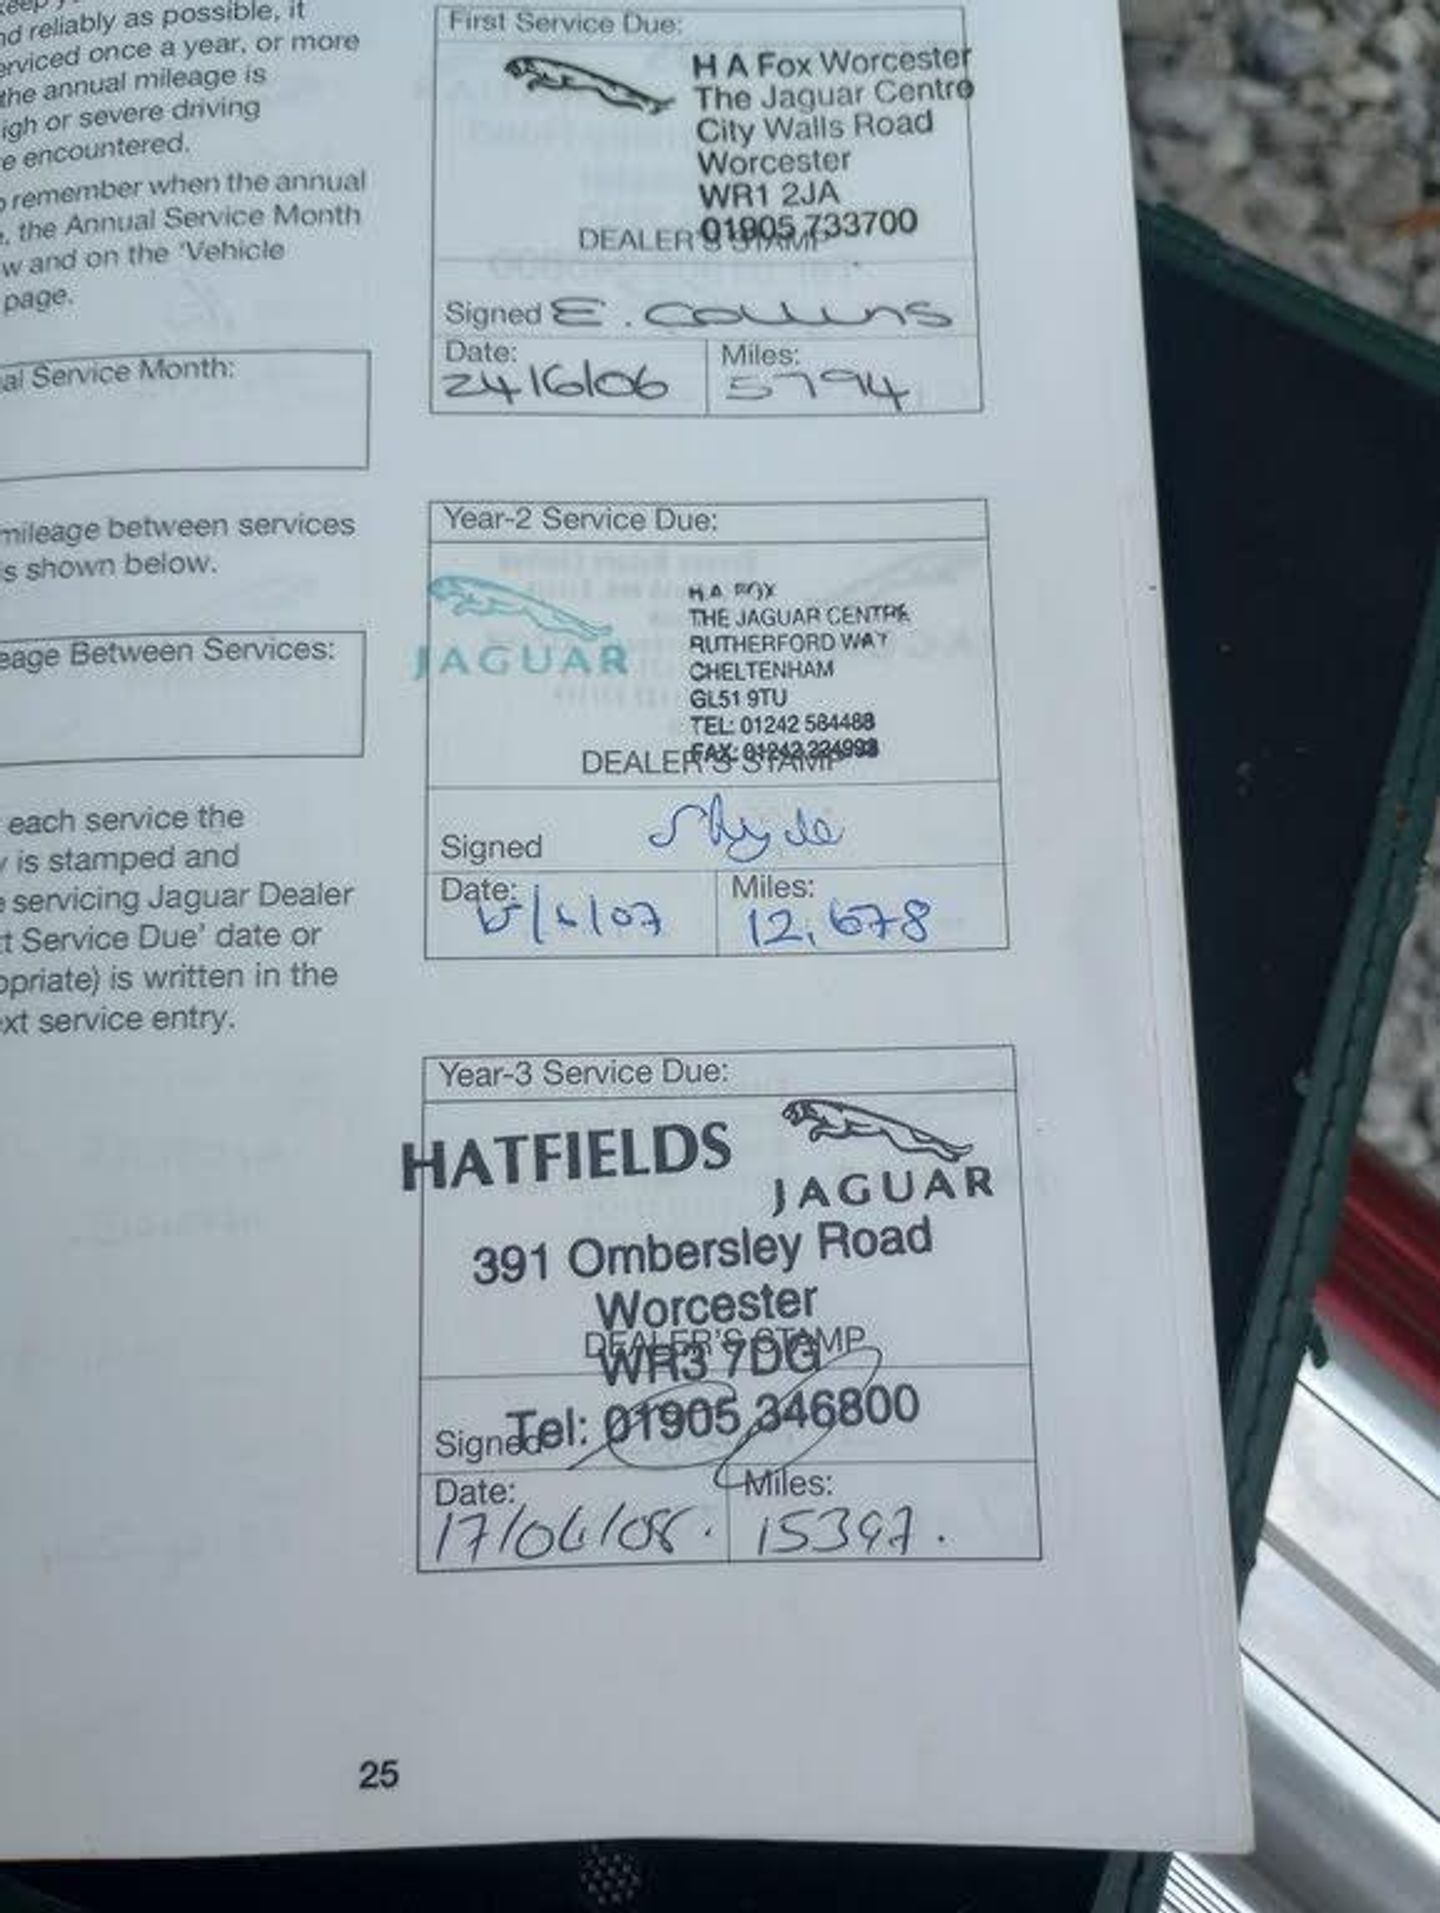 nd reliably as possible, it
erviced once a year, or more
the annual mileage is
igh or severe driving
e encountered.
remember when the annual
, the Annual Service Month
w and on the 'Vehicle
page.
al Service Month:
mileage between services
is shown below.
eage Between Services:
each service the
is stamped and
servicing Jaguar Dealer
t Service Due' date or
opriate) is written in the
ext service entry.
First Service Due:
H A Fox Worcester
The Jaguar Centre
City Walls Road
Worcester
WR1 2JA
01905 733700
DEALER'S STAMP
Signed E. Collins
Date: Miles:
24/6/06 5794
Year-2 Service Due:
JAGUAR
H.A. FOX
THE JAGUAR CENTRE
RUTHERFORD WAY
CHELTENHAM
GL51 9TU
TEL: 01242 584488
FAX: 01242 224998
DEALER'S STAMP
Signed
Date: Miles:
12,678
Year-3 Service Due:
HATFIELDS
JAGUAR
391 Ombersley Road
Worcester
DEALER'S STAMP
WR3 7DG
Tel: 01905 346800
Signed
Date: Miles:
17/06/08. 15397.
25